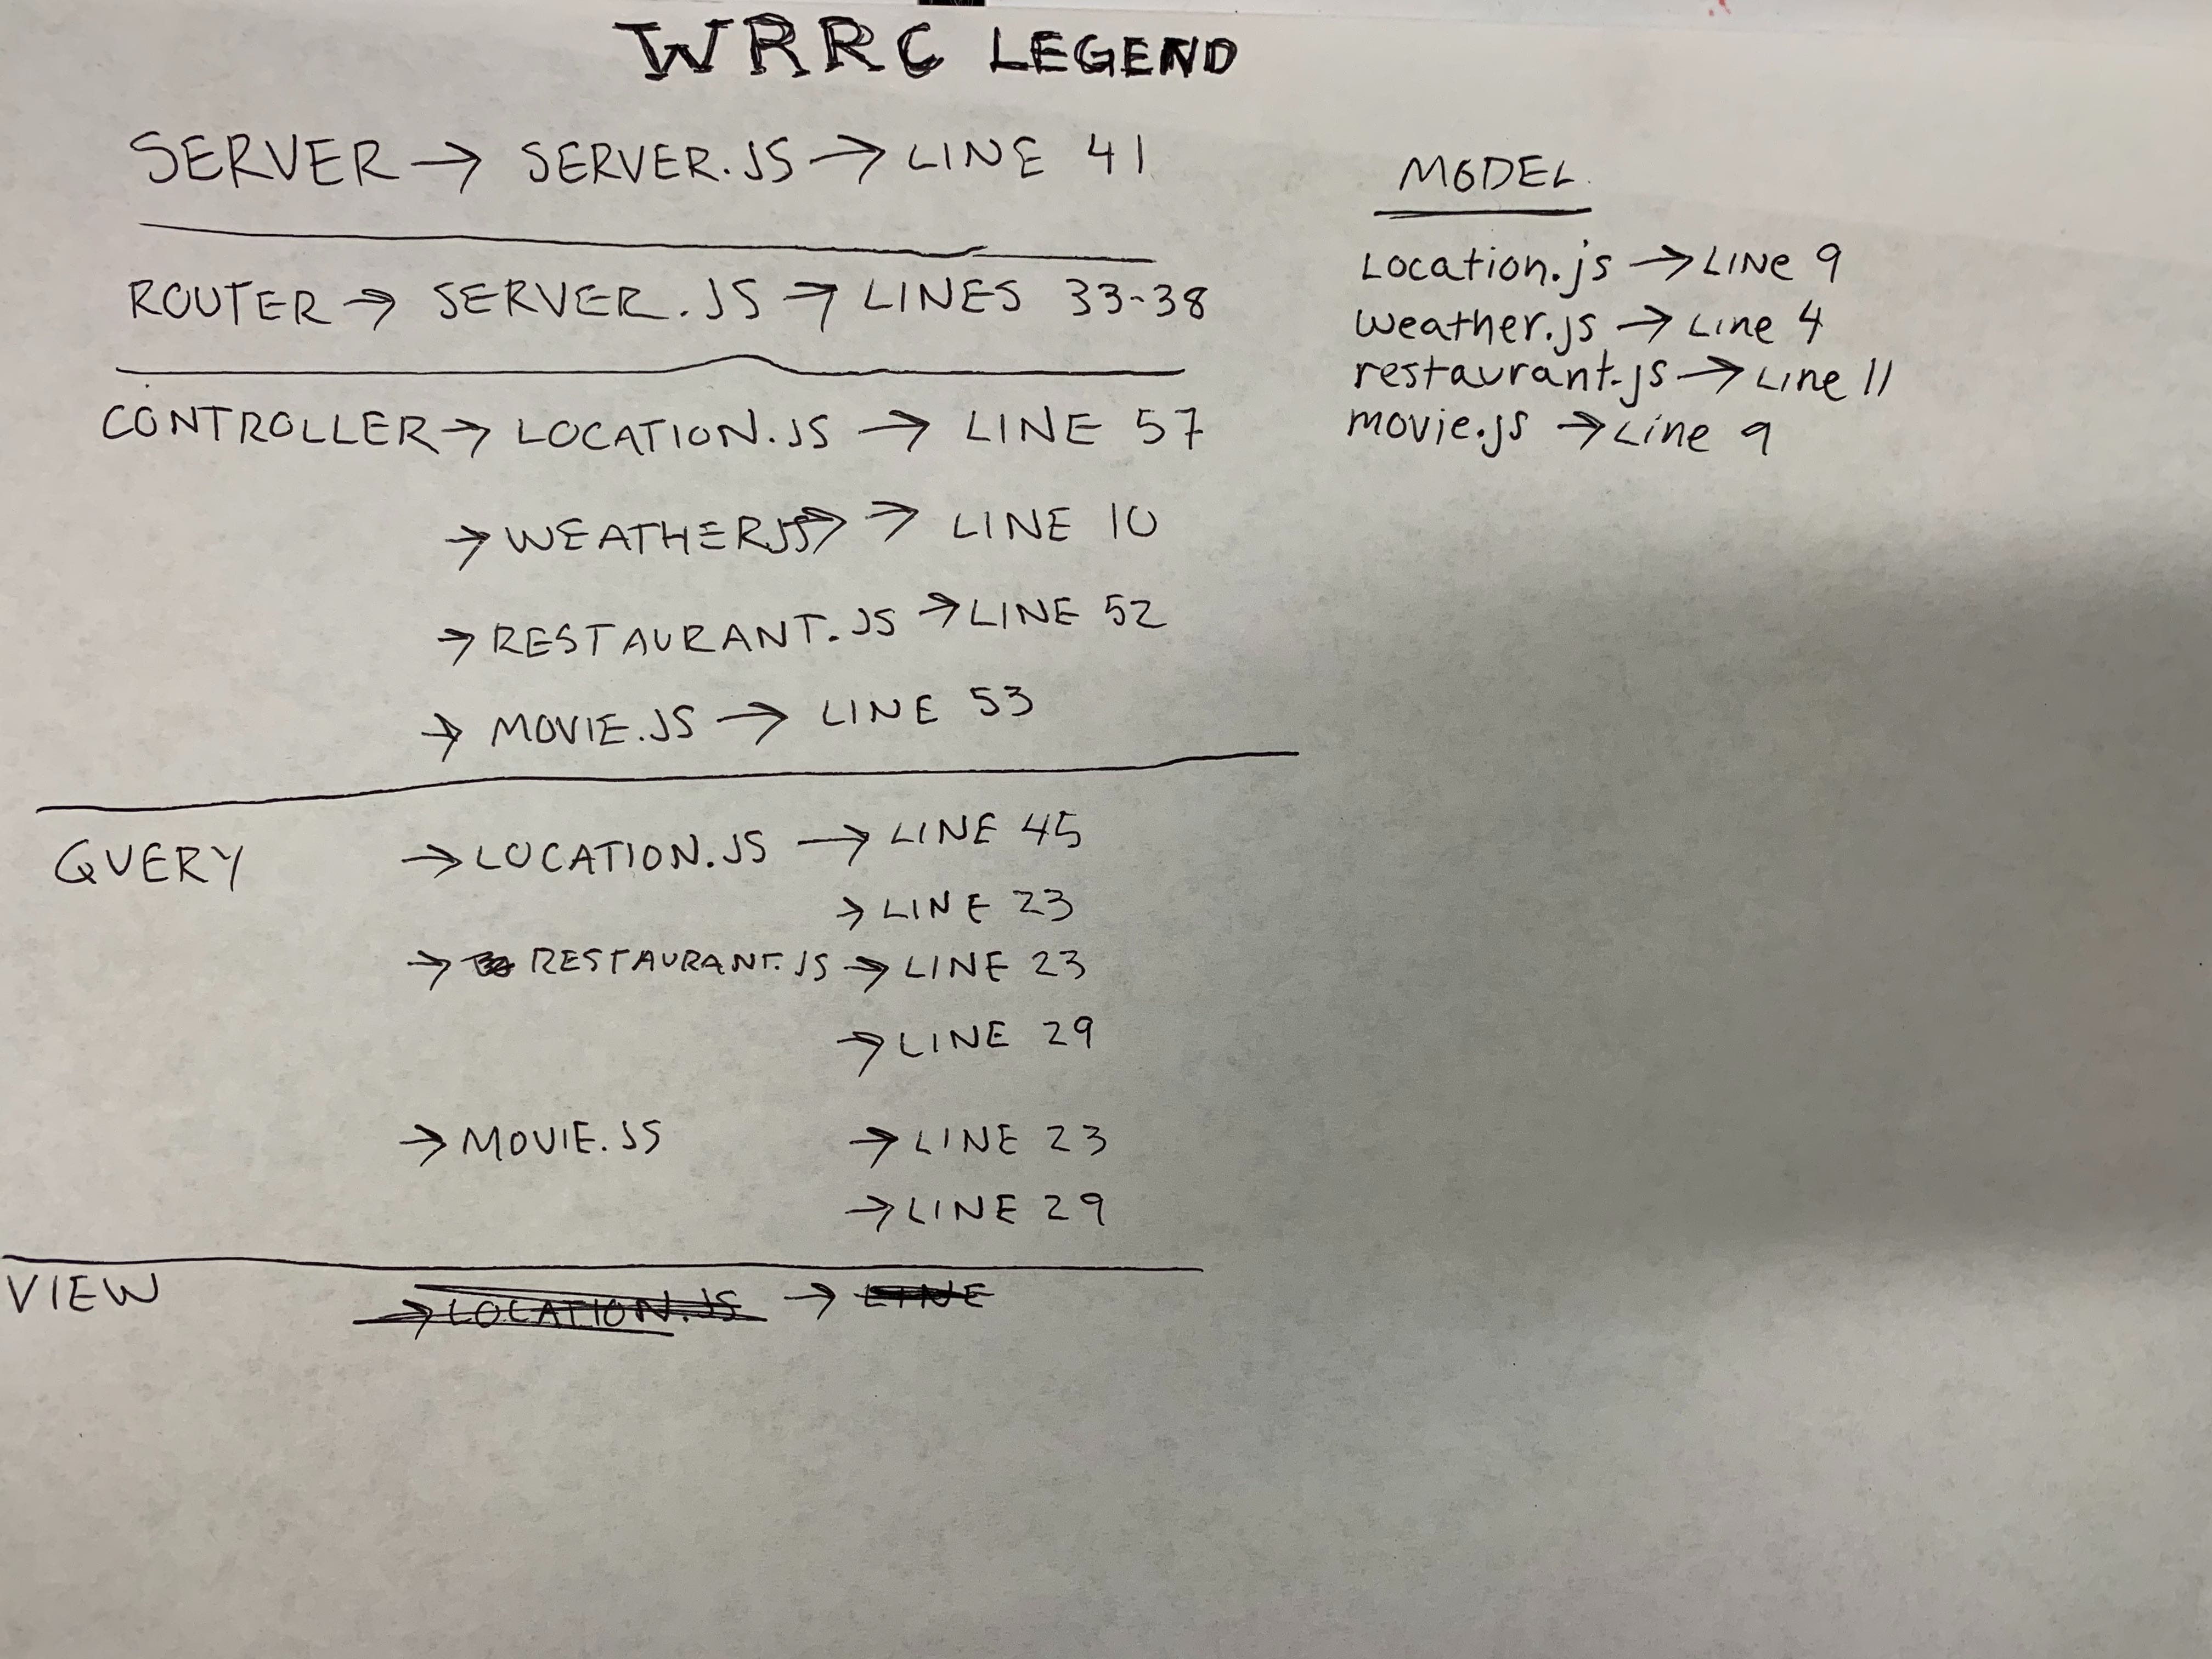 WRRC LEGEND
SERVER → SERVER.JS → LINE 41
ROUTER → SERVER.JS → LINES 33-38
CONTROLLER → LOCATION.JS → LINE 57
→ WEATHERJS → → LINE 10
→ RESTAURANT.JS → LINE 52
→ MOVIE.JS → LINE 53
QUERY → LOCATION.JS → LINE 45
→ LINE 23
→ RESTAURANT.JS → LINE 23
→ LINE 29
→ MOVIE.JS → LINE 23
→ LINE 29
VIEW → LOCATION.JS → LINE
MODEL
Location.js → LINe 9
weather.js → Line 4
restaurant.js → Line 11
movie.js → Line 9